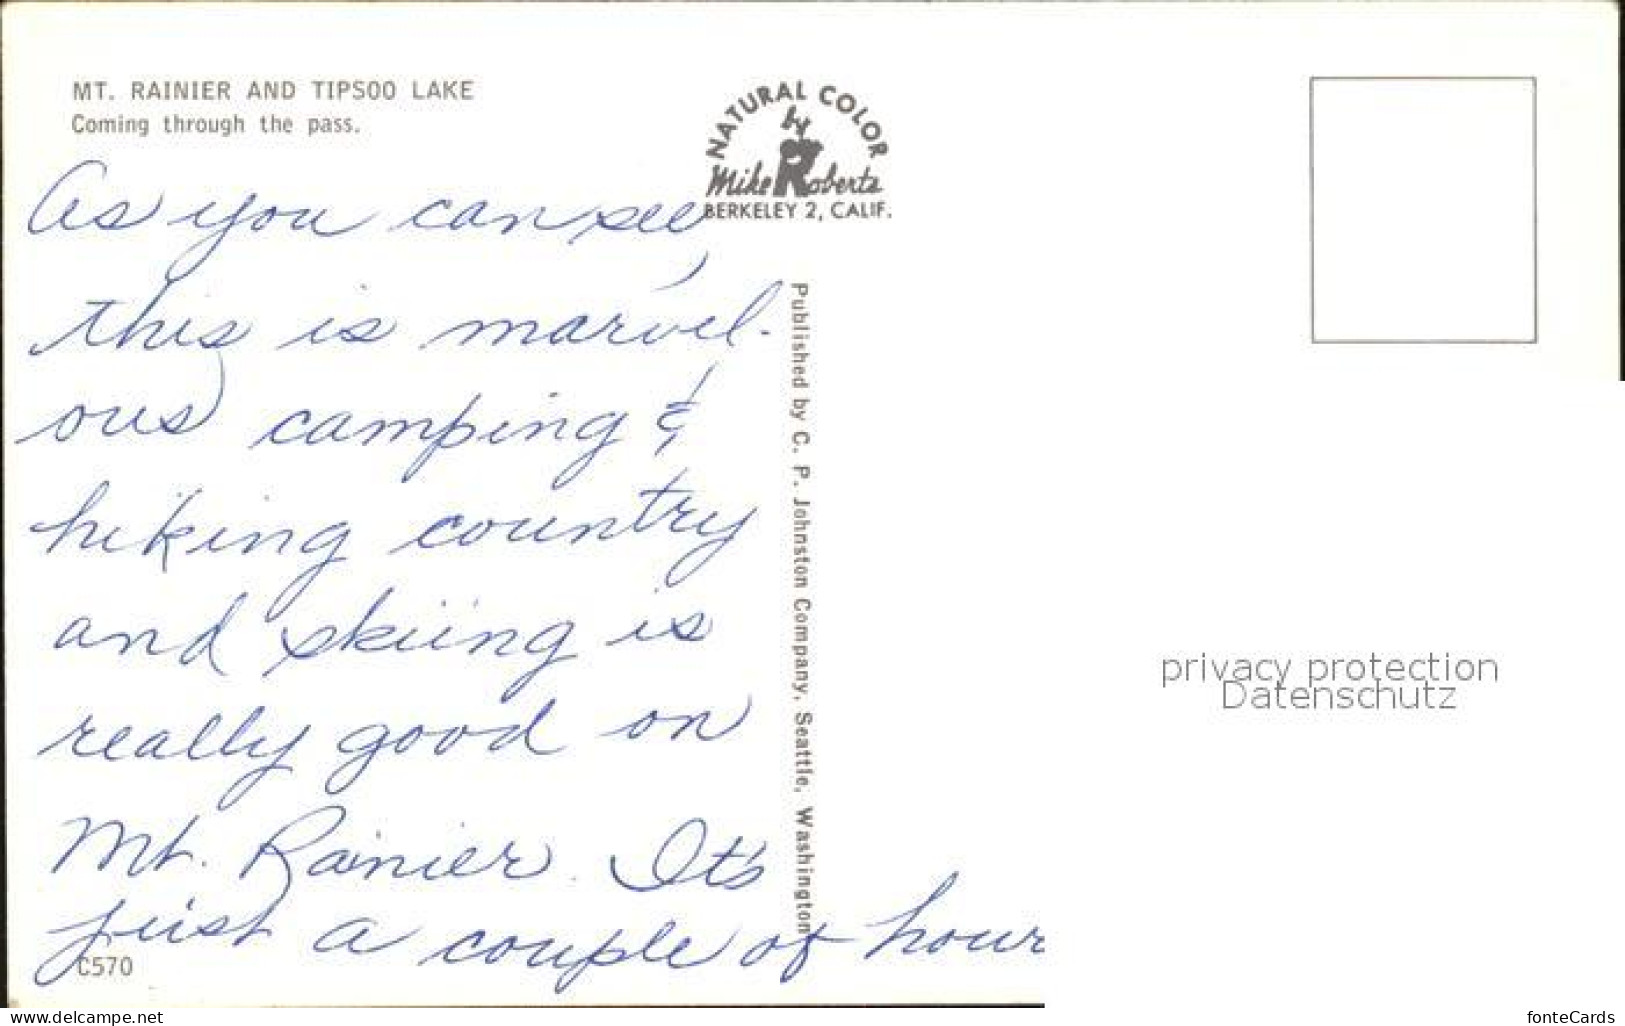 MT. RAINIER AND TIPSOO LAKE
Coming through the pass.
NATURAL COLOR
by
Mike Roberts
BERKELEY 2, CALIF.
As you can see,
this is marvel-
ous camping &
hiking country
and skiing is
really good on
Mt. Rainier. It's
just a couple of hour
C570
Published by C. P. Johnston Company, Seattle, Washington
privacy protection
Datenschutz
www.delcampe.net
fonteCards